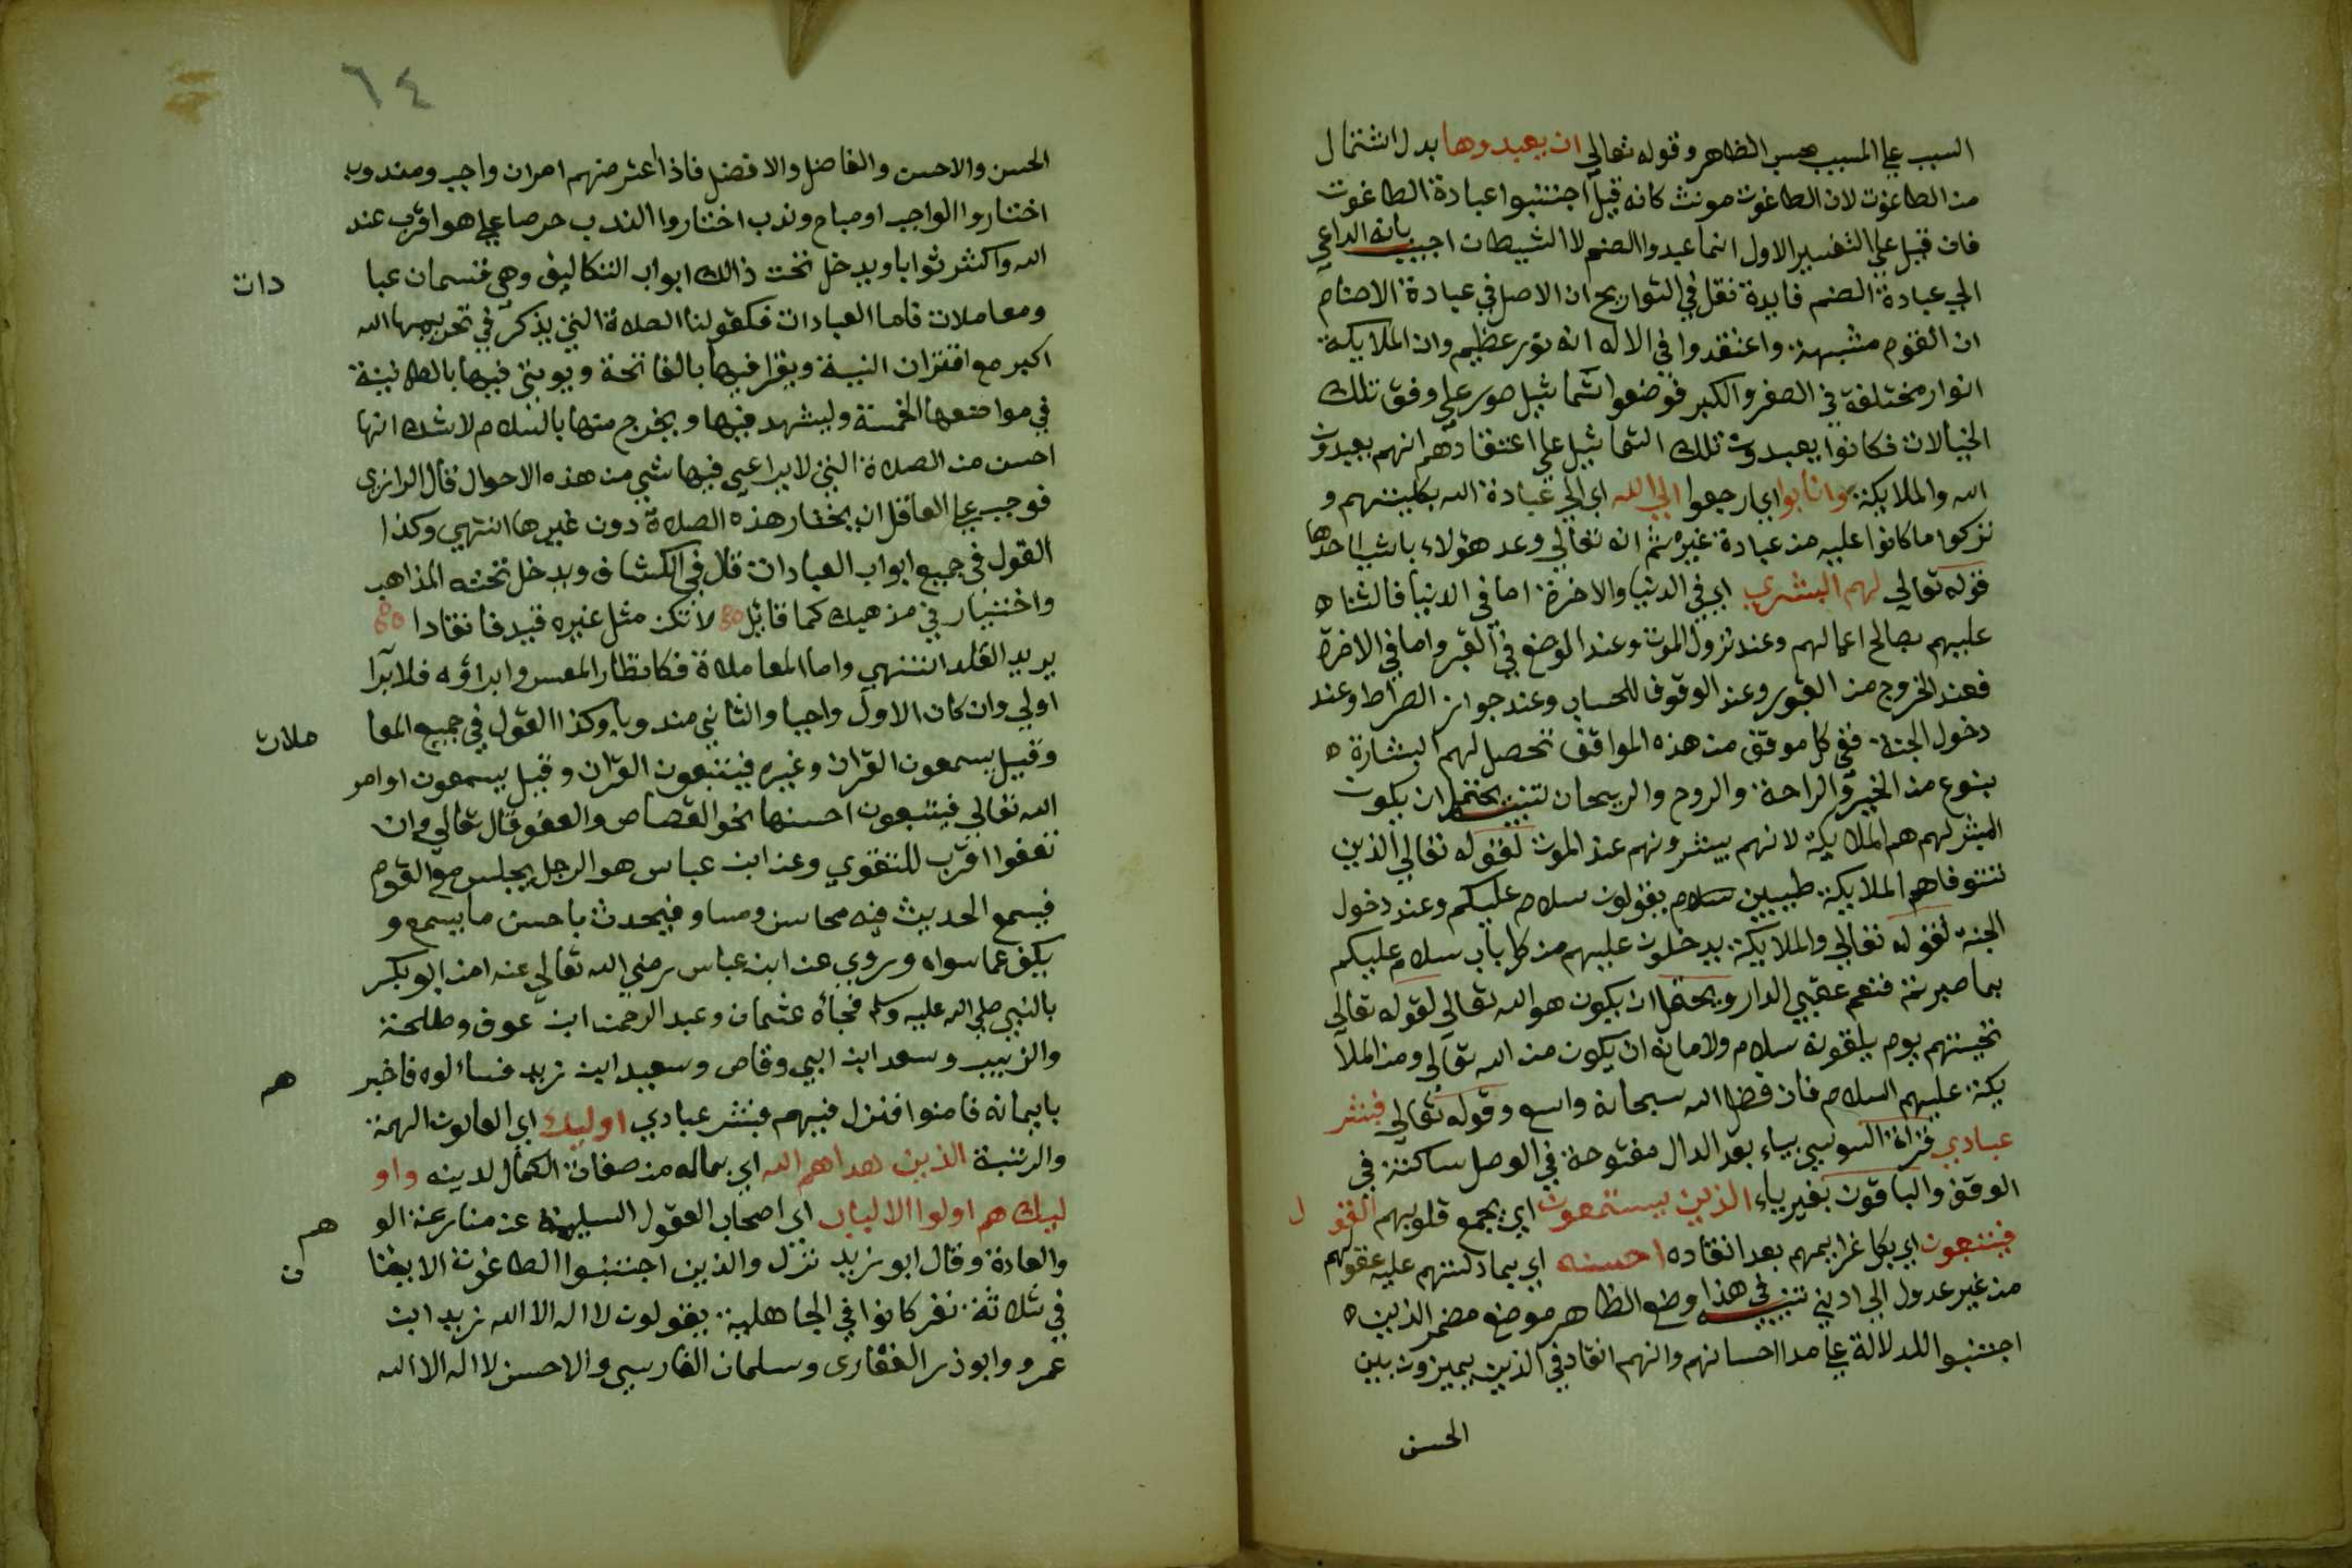 السبب علي المسبب بحسب الظاهر وقوله تعالي ان يعبدوها بدل اشتمال
من الطاغوت لان الطاغوت مونث كانه قيل اجتنبوا عبادة الطاغوت
فان قيل علي التفسير الاول انما عبدوا الصنم لا الشيطان اجيب بانه الداعي
الي عبادة الصنم فايدة نقل في التواريخ ان الاصل في عبادة الاصنام
ان القوم مشبهة واعتقدوا في الاله انه نور عظيم وان الملايكة
انوار مختلفة في الصغر والكبر فوضعوا تماثيل صور علي وفق تلك
الخيالات فكانوا يعبدون تلك التماثيل علي اعتقادهم انهم يعبدون
الله والملايكة وانابوا اي ارجعوا الي الله اي الي عبادة الله بكليتهم و
تركوا ما كانوا عليه من عبادة غيره ثم انه تعالي وعد هؤلاء باشيا احدها
قوله تعالي لهم البشري اي في الدنيا والاخرة اما في الدنيا فالثناء
عليهم بصالح اعمالهم وعند نزول الموت وعند الوضع في القبر واما في الاخرة
فعند الخروج من القبور وعند الوقوف للحساب وعند جواز الصراط وعند
دخول الجنة ففي كل موقف من هذه المواقف تحصل لهم البشارة
بنوع من الخير والراحة والروح والريحان تنبيه يحتمل ان يكون
المبشر لهم هم الملايكة لانهم يبشرونهم عند الموت لقوله تعالي الذين
تتوفاهم الملايكة طيبين يقولون سلام عليكم وعند دخول
الجنة لقوله تعالي والملايكة يدخلون عليهم من كل باب سلام عليكم
بما صبرتم فنعم عقبي الدار ويحتمل ان يكون هو الله تعالي لقوله تعالي
تحيتهم يوم يلقونه سلام ولا مانع ان يكون من الله تعالي ومن الملا
يكة عليهم السلام فان فضل الله سبحانه واسع وقوله تعالي فبشر
عبادي قراة السوسي بياء بعد الدال مفتوحة في الوصل ساكنة في
الوقف والباقون بغير ياء الذين يستمعون اي بجمع قلوبهم القو ل
فيتبعون اي بكل عزايمهم بعد انقاده احسنه اي بما دلتهم عليه عقولهم
من غير عدول الي ادني تنبيه في هذا وضع الظاهر موضع مضمر الذين
اجتنبوا للدلالة علي مدا احسانهم وانهم انقاد في الذين يميزون بين
الحسن
٦٤
الحسن والاحسن والفاضل والافضل فاذا اعترضهم امران واجب ومندوب
اختاروا الواجب او مباح وندب اختاروا الندب حرصا علي هو اقرب عند
الله واكثر ثوابا ويدخل تحت ذالك ابواب التكاليف وهي قسمان عبا دات
ومعاملات فاما العبادات فكقولنا الصلاة التي يذكر في تحريمها الله
اكبر مع اقتران النية ويقرا فيها بالفاتحة ويوتي فيها بالطمانينة
في مواضعها الخمسة ويشهد فيها ويخرج منها بالسلام لا شك انها
احسن من الصلاة التي لا يراعي فيها شي من هذه الاحوال قال الرازي
فوجب علي العاقل ان يختار هذه الصلاة دون غيرها انتهي وكذا
القول في جميع ابواب العبادات قال في الكشاف ويدخل تحته المذاهب
واختيار في مذهبك كما قائل لا تكن مثل غيره قيد فانقادا
يريد القلد انتهي واما المعاملاة فكانظار المعسر وابراؤه فلابرآ
اولي وان كان الاول واجبا والثاني مندوبا وكذا القول في جميع المعا ملات
وقيل يسمعون القران وغيره فيتبعون القران وقيل يسمعون اوامر
الله تعالي فيتبعون احسنها نحو القصاص والعفو قال تعالي وان
تعفوا اقرب للتقوي وعن ابن عباس هو الرجل يجلس مع القوم
فيسمع الحديث فيه محاسن ومساو فيحدث باحسن ما يسمع و
يكف عما سواه وروي عن ابن عباس رضي الله تعالي عنه امن ابو بكر
بالنبي صلي الله عليه وسلم فجاه عثمان وعبد الرحمن ابن عوف وطلحة
والزبير وسعد ابن ابي وقاص وسعيد ابن زيد فسالوه فاخبر هم
بايمانه فامنوا فنزل فيهم فبشر عبادي اوليك اي العالون الهمة
والرتبة الذين هداهم الله اي بماله من صفات الكمال لدينه واو
ليك هم اولوا الالباب اي اصحاب العقول السليمة عن منازعة الو هم
والعادة وقال ابو زيد نزل والذين اجتنبوا الطاغوت الايتا ن
في ثلاثة نفر كانوا في الجاهلية يقولون لا اله الا الله زيد ابن
عمرو وابو ذر الغفاري وسلمان الفارسي والاحسن لا اله الا الله